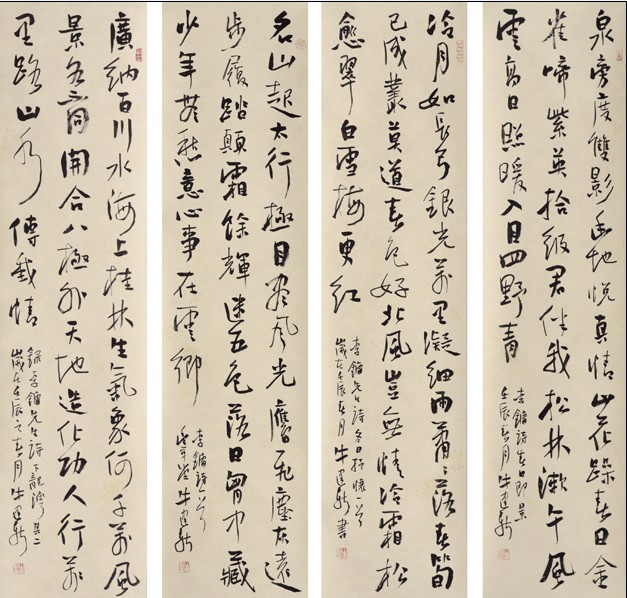 泉旁度雙影幽地悦真情山花躁春日金
雀啼紫英拾级君伴我松林漱午風
雲高日照暖入目四野青
李鐳詩春日即景
壬辰春月牛建新
冷月如長弓銀光萬里凝細雨蕭蕭落春筍
已成叢莫道春色好北風豈無情冷霜松
愈翠白雪梅更紅
李鐳先生詩冬日抒懷一首
歲在壬辰春月牛建新書
名山起太行極目盡風光鷹飛塵灰遠
步履踏顛霜餘輝迷五色落日胸中藏
少年無愁意心事在雲鄉
李鐳詩一首
堂牛建新
廣納百川水海上桂林生氣象何千萬風
景各不同開合八極外天地造化功人行萬
里路山水傳我情
錄李鐳先生詩下龍灣其二
歲在壬辰之春月牛建新